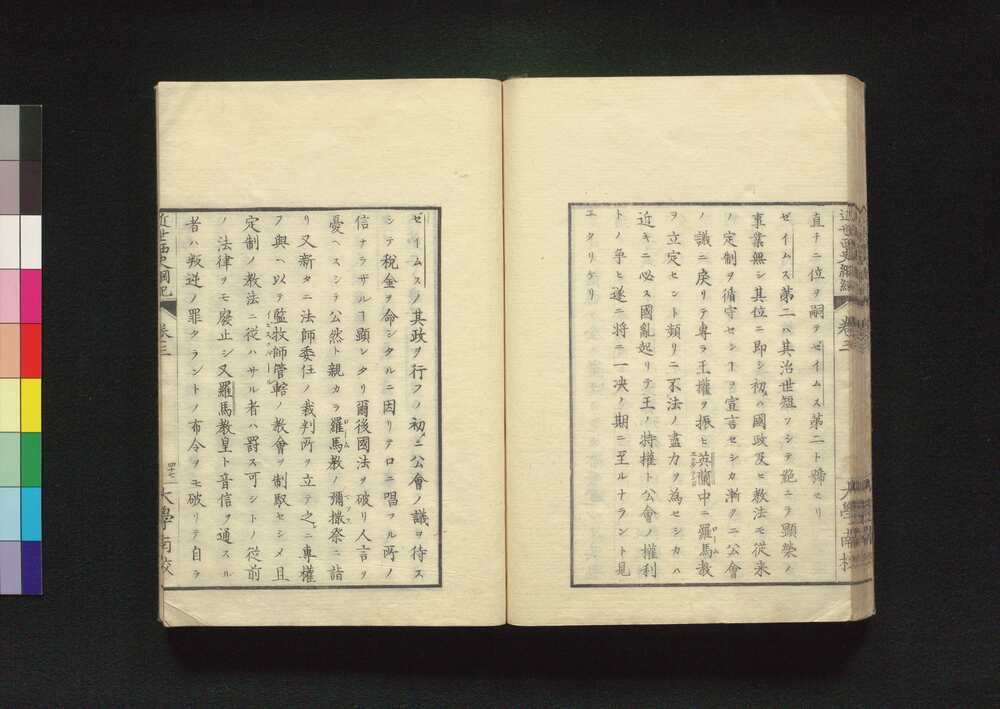 直チニ位ヲ嗣テゼイムス第二ト稱セリ
ゼイムス第二ハ其治世短フシテ絶ニテ顯榮ノ
事業無シ其位ニ即シ初ハ國政及ヒ教法モ從来
ノ定制ヲ循守セシヿヲ宣言セシカ漸クニ公會
ノ議ニ戻リテ専ラ王權ヲ振ヒ英蘭中ニ羅馬教
ヲ立定セント頻リニ不法ノ盡力ヲ為セシカハ
近キニ必ス國亂起リテ王ノ特權ト公會ノ權利
トノ爭ヒ遂ニ將ニ一决ノ期ニ至ルナラント見
エタリケリ
大學南校
近世西史綱紀 卷三
ゼイムスノ其政ヲ行フノ初ニ公會ノ議ヲ待ス
シテ税金ヲ命シタルニ因リテ口ニ唱フル所ノ
信ナラザルヿ顯レタリ爾後國法ヲ破リ人言ヲ
憂ヘスシテ公然ト親カラ羅馬教ノ彌撒祭ニ詣
リ又新タニ法師委任ノ裁判所ヲ立テ之ニ專權
ヲ與ヘ以テ監牧師管轄ノ教會ヲ制馭セシメ且
定制ノ教法ニ從ハサル者ハ罰ス可シトノ從前
ノ法律ヲモ廢止シ又羅馬教皇ト音信ヲ通スル
者ハ叛逆ノ罪タラントノ布令ヲモ破リテ自ラ
近世西史綱紀 卷三
大學南校